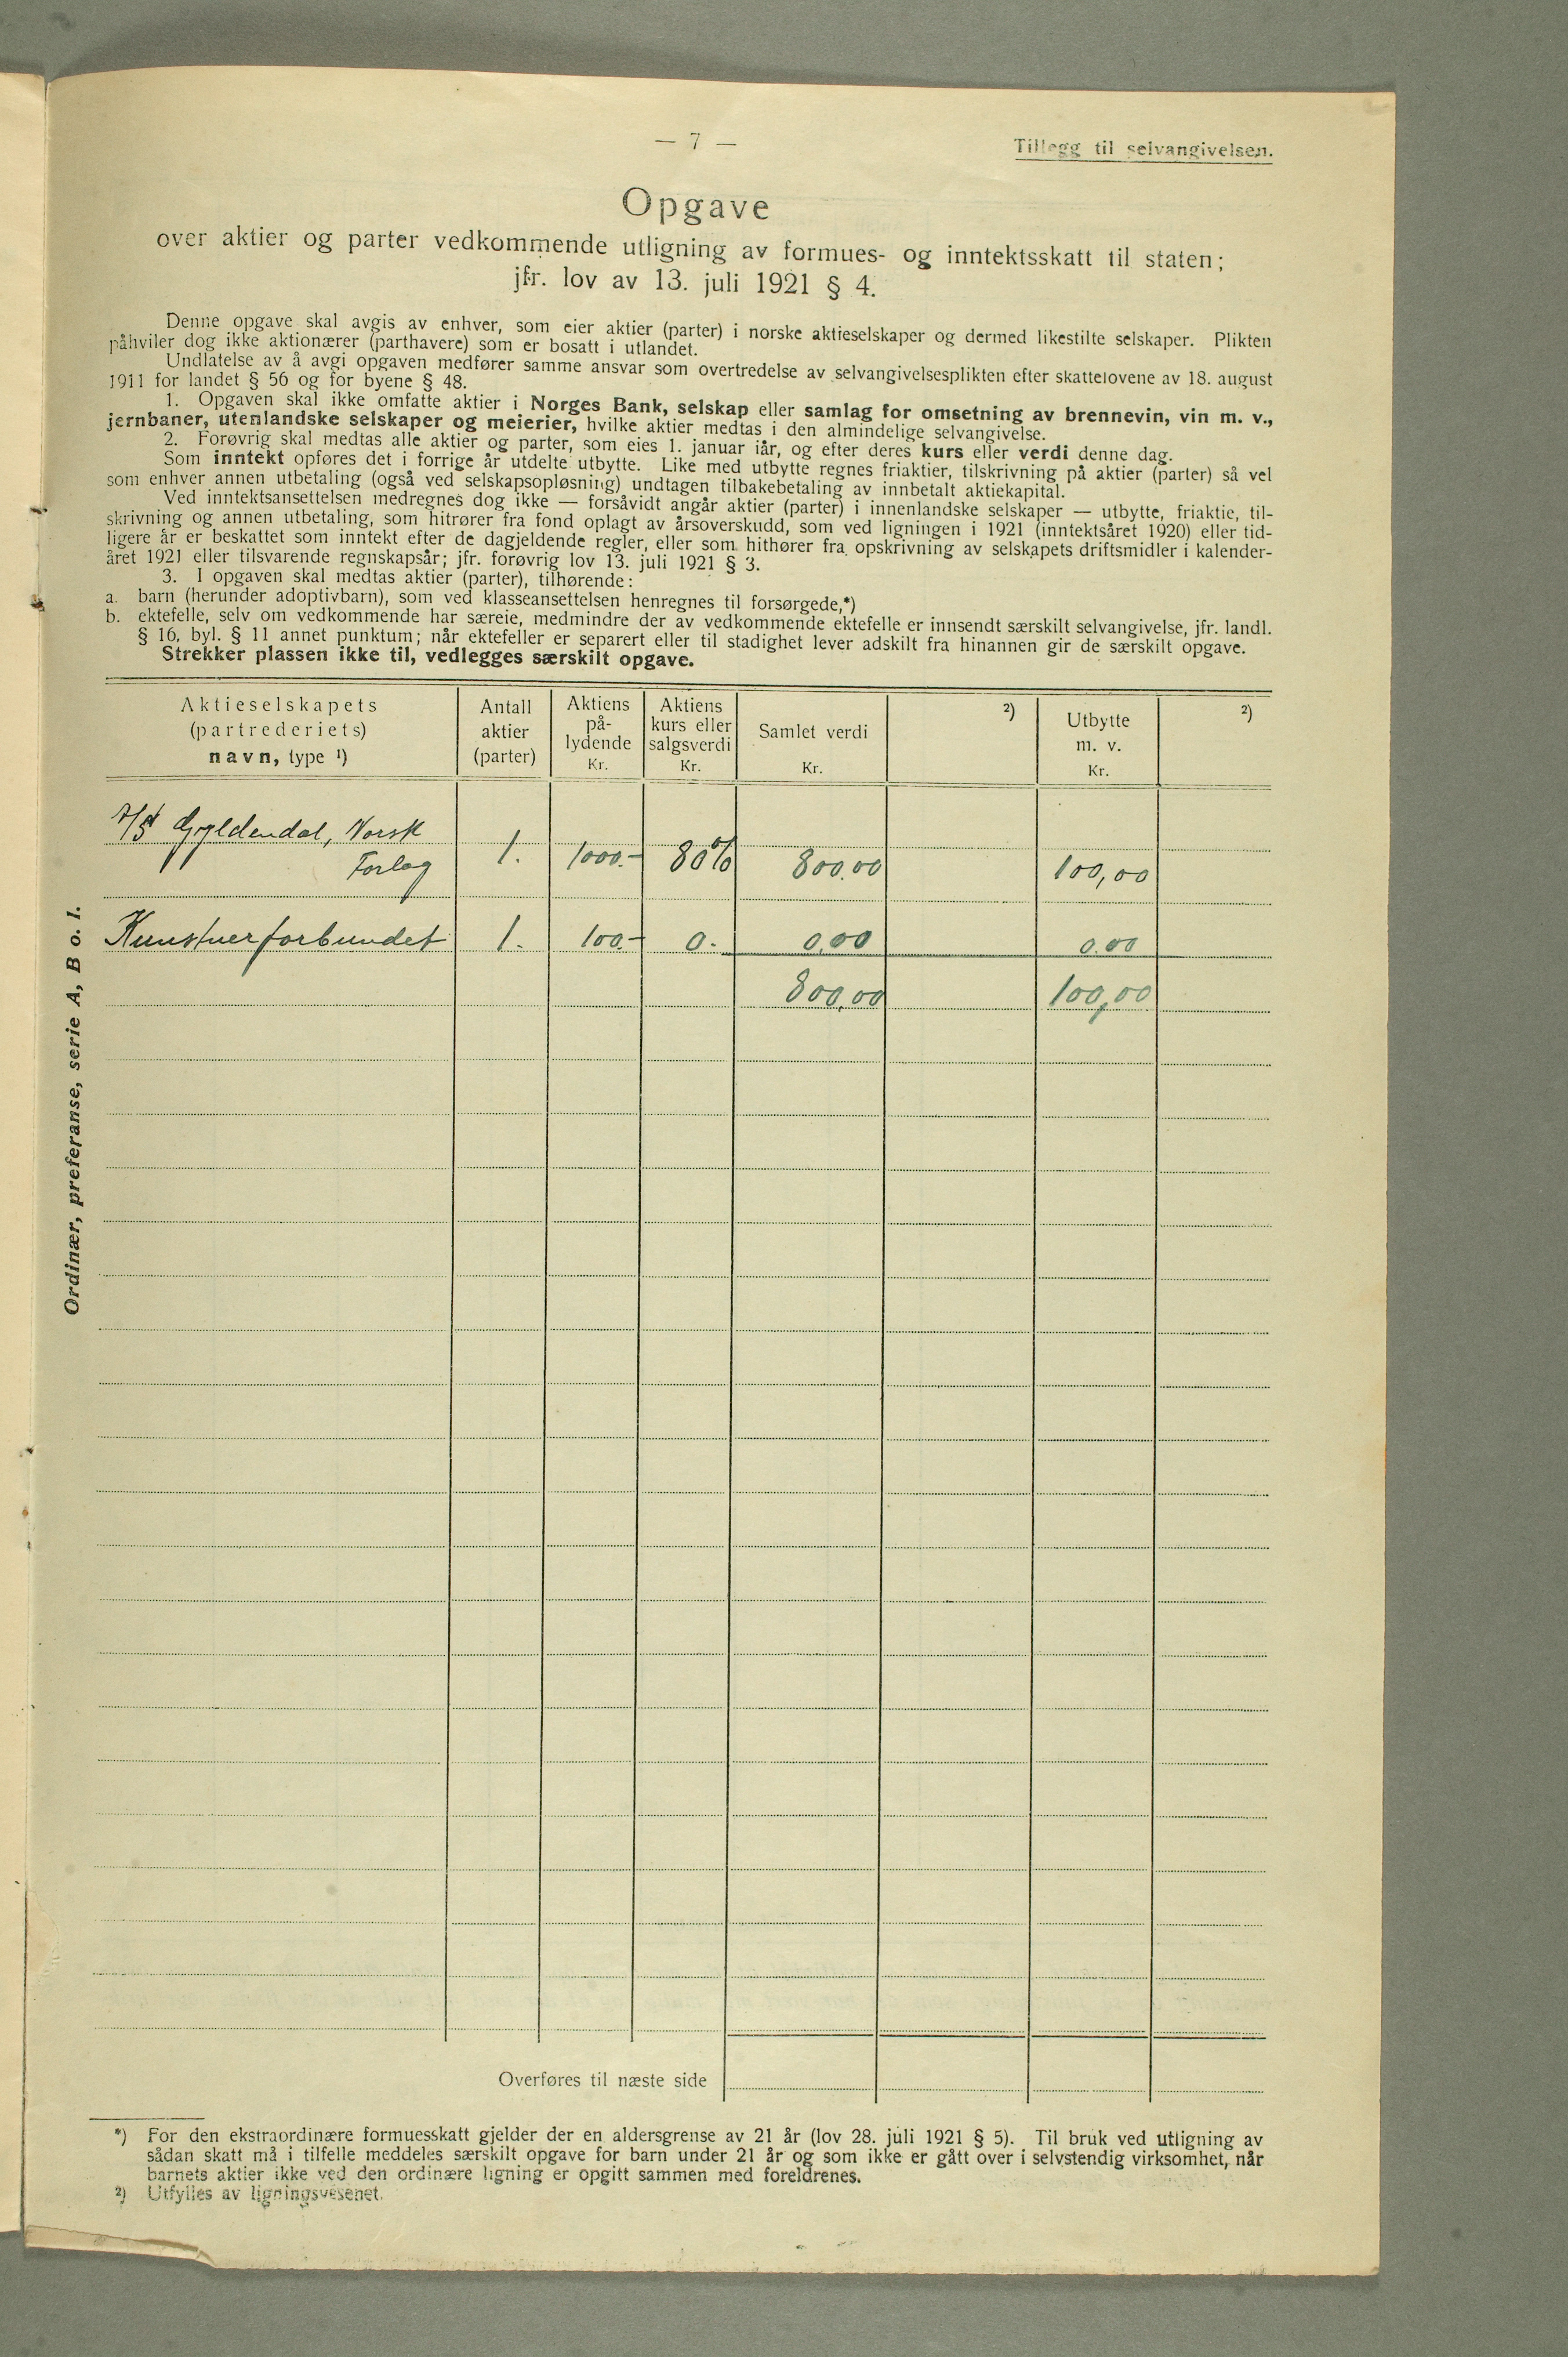 — 7 —
Tillegg til selvangivelsen.
Opgave
over aktier og parter vedkommende utligning av formues- og inntektsskatt til staten;
jfr. lov av 13. juli 1921 § 4.
Denne opgave skal avgis av enhver, som eier aktier (parter) i norske aktieselskaper og dermed likestilte selskaper. Plikten
påhviler dog ikke aktionærer (parthavere) som er bosatt i utlandet.
Undlatelse av å avgi opgaven medfører samme ansvar som overtredelse av selvangivelsesplikten efter skattelovene av 18. august
1911 for landet § 56 og for byene § 48.
1. Opgaven skal ikke omfatte aktier i Norges Bank, selskap eller samlag for omsetning av brennevin, vin m. v.,
jernbaner, utenlandske selskaper og meierier, hvilke aktier medtas i den almindelige selvangivelse.
2. Forøvrig skal medtas alle aktier og parter, som eies 1. januar iår, og efter deres kurs eller verdi denne dag.
Som inntekt opføres det i forrige år utdelte utbytte. Like med utbytte regnes friaktier, tilskrivning på aktier (parter) så vel
som enhver annen utbetaling (også ved selskapsopløsning) undtagen tilbakebetaling av innbetalt aktiekapital.
Ved inntektsansettelsen medregnes dog ikke — forsåvidt angår aktier (parter) i innenlandske selskaper — utbytte, friaktie, til-
skrivning og annen utbetaling, som hitrører fra fond oplagt av årsoverskudd, som ved ligningen i 1921 (inntektsåret 1920) eller tid-
ligere år er beskattet som inntekt efter de dagjeldende regler, eller som hithører fra opskrivning av selskapets driftsmidler i kalender-
året 1921 eller tilsvarende regnskapsår; jfr. forøvrig lov 13. juli 1921 § 3.
3. I opgaven skal medtas aktier (parter), tilhørende:
a. barn (herunder adoptivbarn), som ved klasseansettelsen henregnes til forsørgede,*)
b. ektefelle, selv om vedkommende har særeie, medmindre der av vedkommende ektefelle er innsendt særskilt selvangivelse, jfr. landl.
§ 16, byl. § 11 annet punktum; når ektefeller er separert eller til stadighet lever adskilt fra hinannen gir de særskilt opgave.
Strekker plassen ikke til, vedlegges særskilt opgave.
Aktieselskapets (partrederiets) navn, type ¹)
Antall aktier (parter)
Aktiens pålydende Kr.
Aktiens kurs eller salgsverdi Kr.
Samlet verdi Kr.
²)
Utbytte m. v. Kr.
²)
A/S Gyldendal, Norsk
Forlag 1. 1000.- 80% 800.00 100,00
Kunstnerforbundet 1. 100.- 0. 0,00 0.00
800,00 100,00
Ordinær, preferanse, serie A, B o. l.
Overføres til næste side
*) For den ekstraordinære formuesskatt gjelder der en aldersgrense av 21 år (lov 28. juli 1921 § 5). Til bruk ved utligning av
sådan skatt må i tilfelle meddeles særskilt opgave for barn under 21 år og som ikke er gått over i selvstendig virksomhet, når
barnets aktier ikke ved den ordinære ligning er opgitt sammen med foreldrenes.
²) Utfylles av ligningsvesenet.